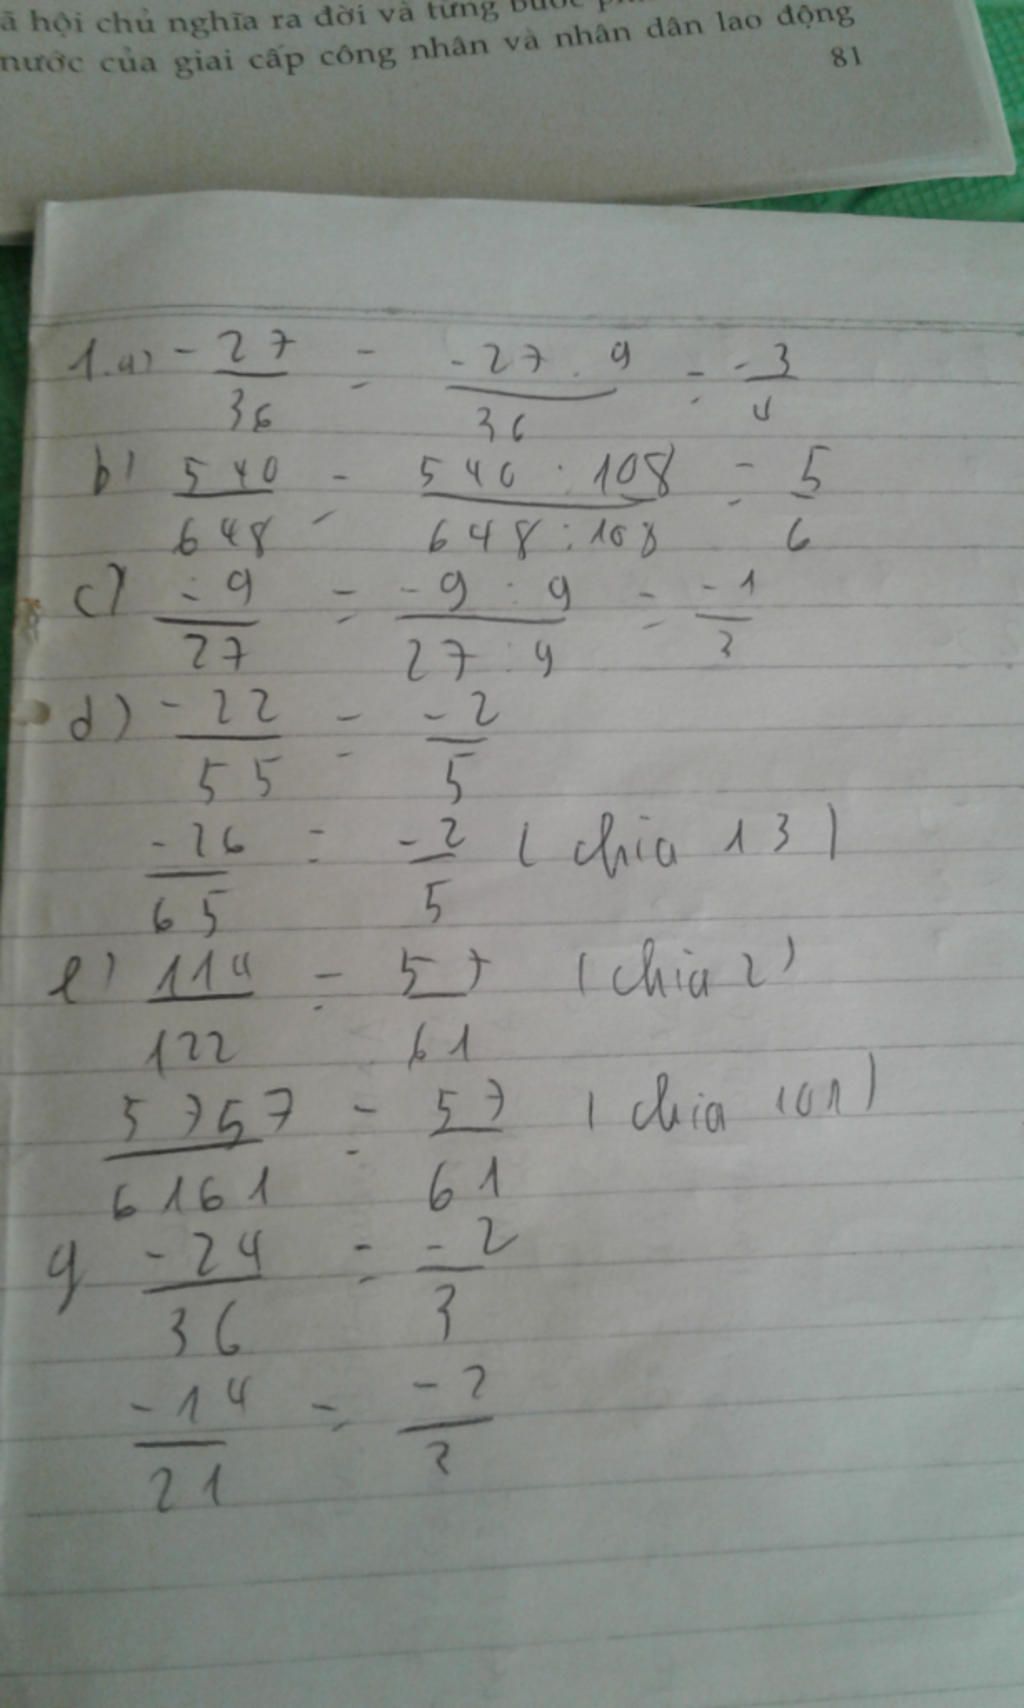 ã hội chủ nghĩa ra đời và từng bước
nước của giai cấp công nhân và nhân dân lao động
81
1.a) -27/36 = -27.9/36 = -3/4
b) 540/648 = 540:108/648:108 = 5/6
c) -9/27 = -9:9/27:9 = -1/3
d) -22/55 = -2/5
-26/65 = -2/5 (chia 13)
e) 114/122 = 57/61 (chia 2)
5757/6161 = 57/61 (chia 101)
g -24/36 = -2/3
-14/21 = -2/3